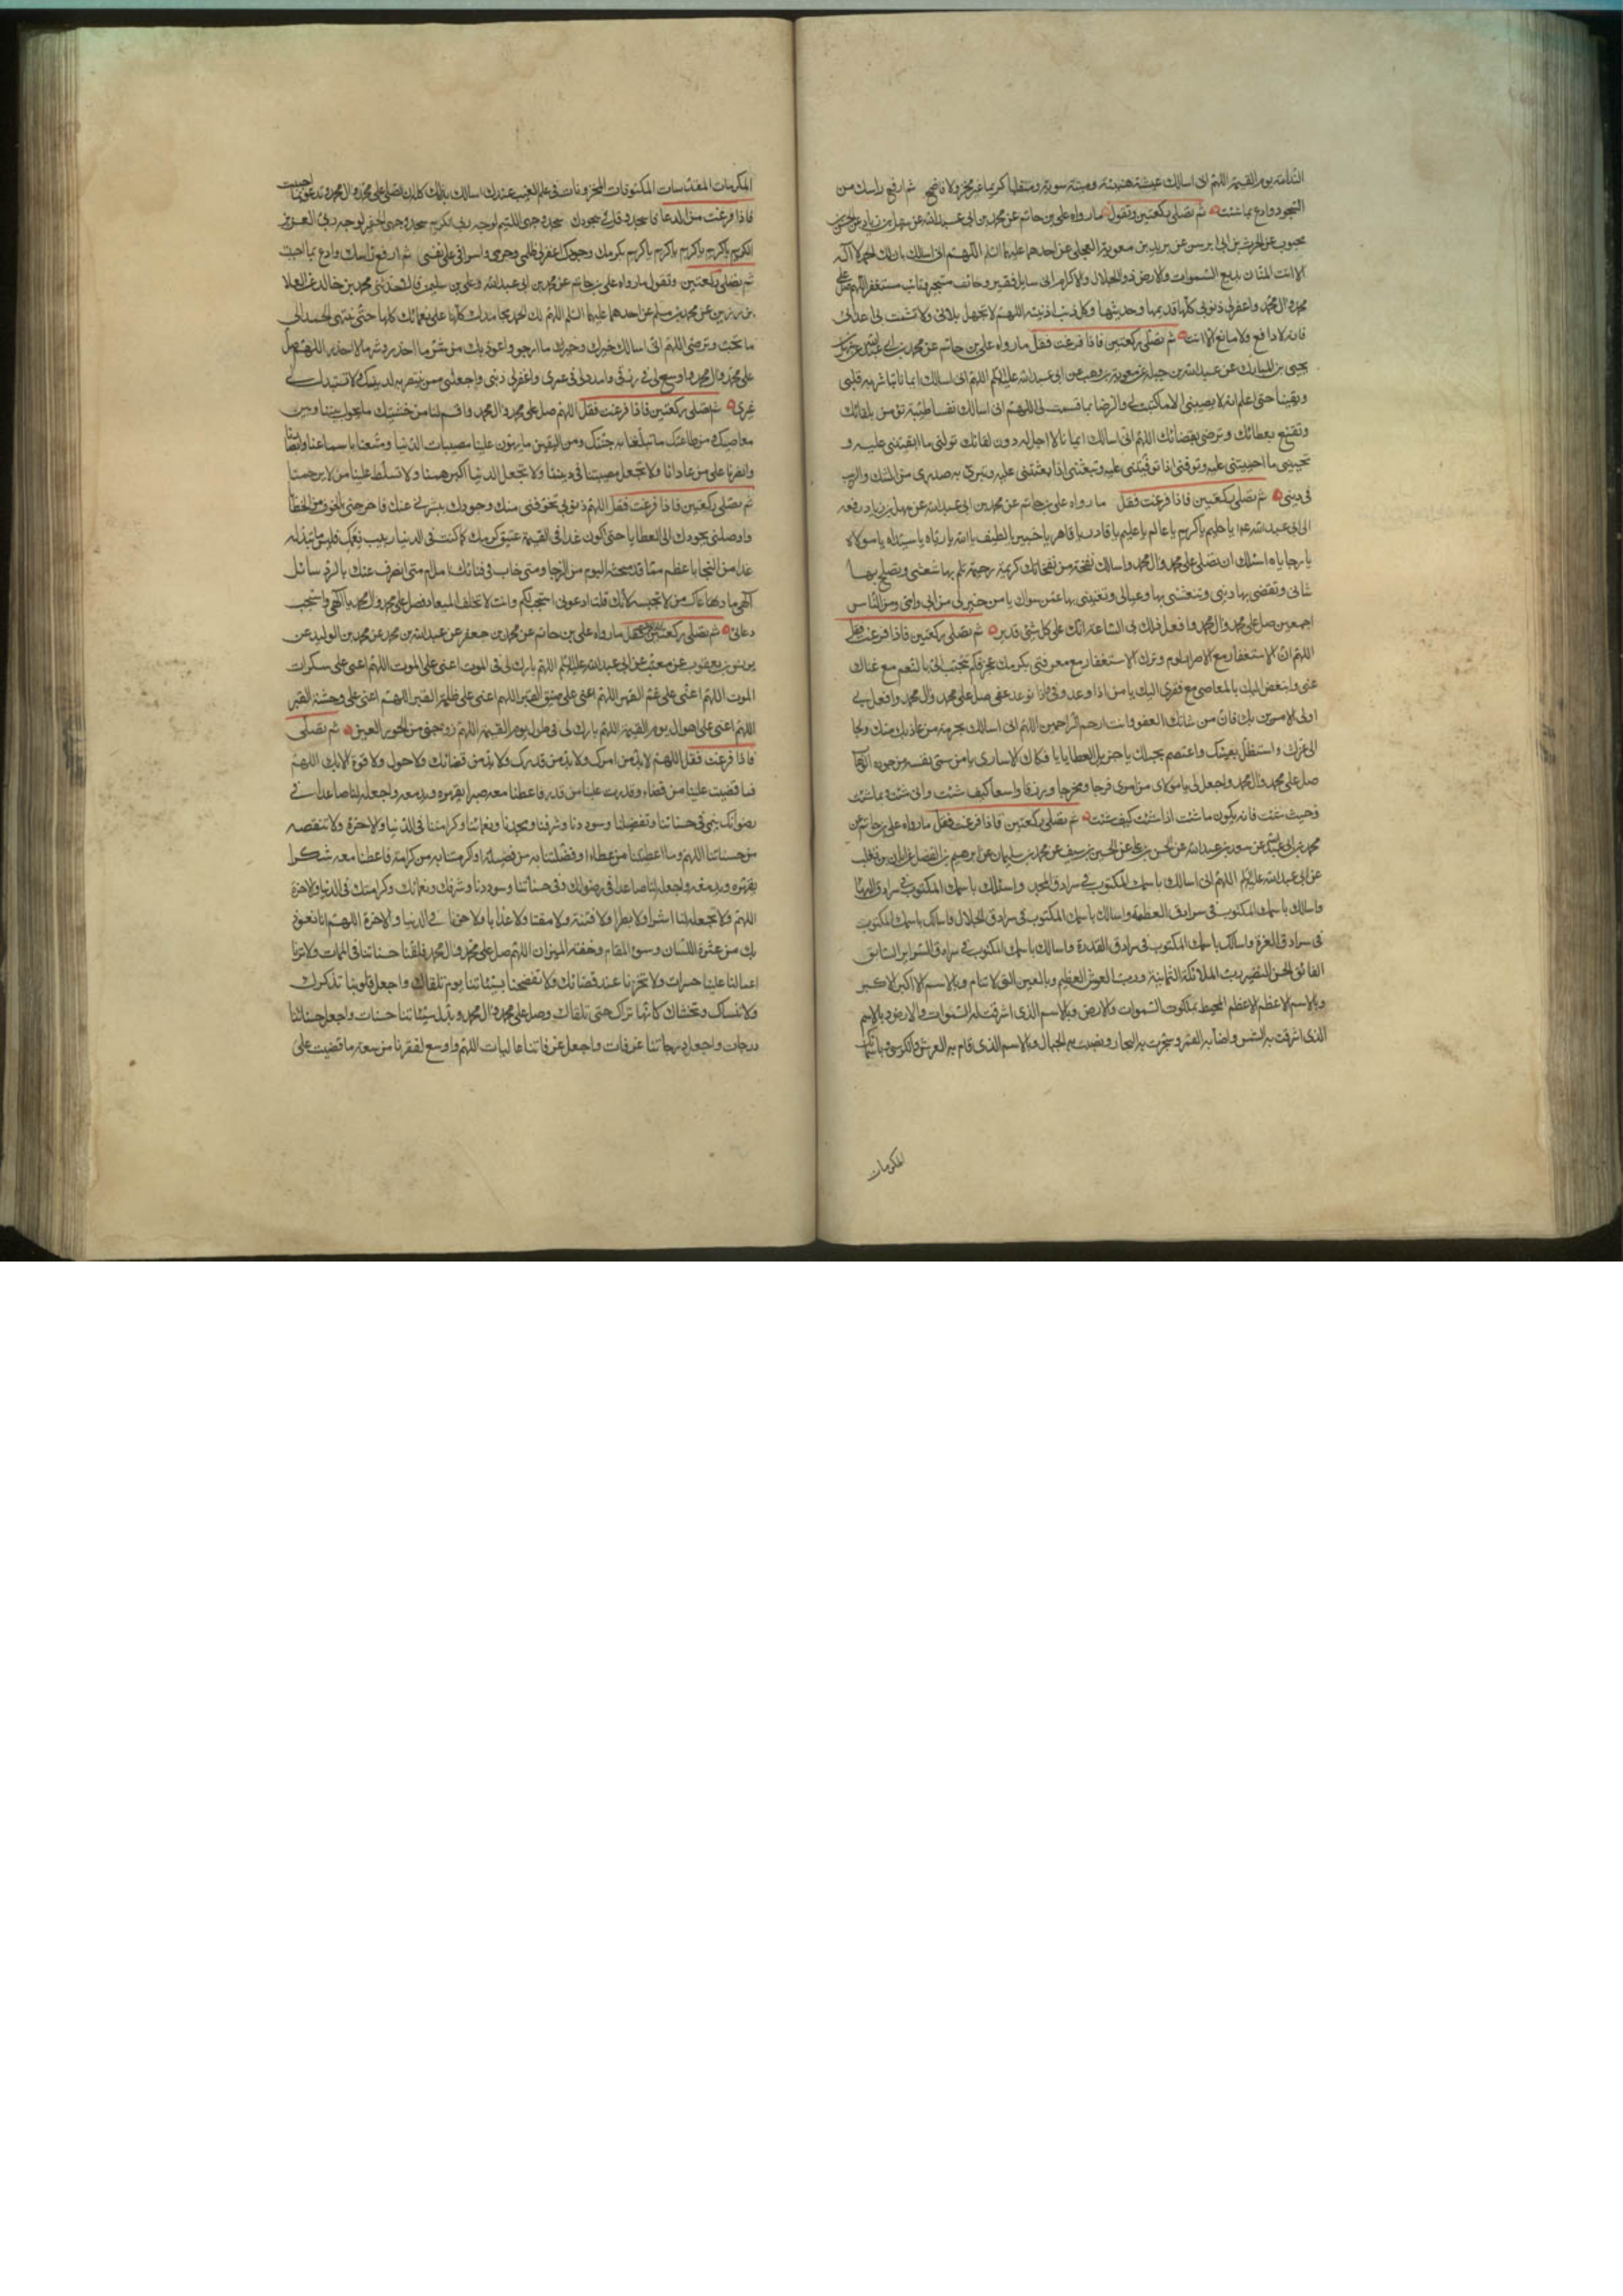 الندامة يوم القيمة اللهم انى اسالك عيشة هنيئة وميتة سوية ومنقلبا كريما غير مخز ولا فاضح ثم ارفع راسك من
السجود وادع بما شئت ثم تصلى ركعتين وتقول ما رواه على بن حاتم عن محمد بن ابى عبد الله عن سهل بن زياد عن الحسن
محبوب عن بريد بن معوية العجلى عن احدهما عليهما السلم اللهم انى اسالك بان لك الحمد لا اله
الا انت المنان بديع السموات والارض ذو الجلال والاكرام انى سايل فقير وخائف مستجير وتائب مستغفر اللهم صل على
محمد وال محمد واغفر لى ذنوبى كلها قديمها وحديثها وكل ذنب اذنبته اللهم لا تجهد بلائى ولا تشمت بى اعدائى
فانه لا دافع ولا مانع الا انت ثم تصلى ركعتين فاذا فرغت فقل ما رواه على بن حاتم عن محمد بن ابى عبد الله
يحيى بن المبارك عن عبد الله بن جبلة عن معوية بن وهب عن ابى عبد الله عليه السلم اللهم انى اسالك ايمانا تباشر به قلبى
ويقينا حتى اعلم انه لا يصيبنى الا ما كتبت لى والرضا بما قسمت لى اللهم انى اسالك نفسا طيبة تؤمن بلقائك
وتقنع بعطائك وترضى بقضائك اللهم انى اسالك ايمانا لا اجل له دون لقائك تولنى ما ابقيتنى عليه و
تحيينى ما احييتنى عليه وتوفنى اذا توفيتنى عليه وتبعثنى اذا بعثتنى عليه وتبرئ به صدرى من الشك والريب
فى دينى ثم تصلى ركعتين فاذا فرغت فقل ما رواه على بن حاتم عن محمد بن ابى عبد الله عن سهل بن زياد رفعه
الى ابى عبد الله يا حليم يا كريم يا عالم يا عليم يا قادر يا قاهر يا خبير يا لطيف يا الله يا رباه يا سيداه يا مولاه
يا رجاياه اسئلك ان تصلى على محمد وال محمد واسالك نفحة من نفحاتك كريمة رحيمة تلم بها شعثى وتصلح بها
شانى وتقضى بها دينى وتنعشنى بها وعيالى وتغنينى بها عمن سواك يا من هو خير لى من ابى وامى ومن الناس
اجمعين صل على محمد وال محمد وافعل ذلك بى الساعة انك على كل شئ قدير ثم تصلى ركعتين فاذا فرغت فقل
اللهم ان الاستغفار مع الاصرار لوم وترك الاستغفار مع معرفتى بكرمك عجز فكم تتحبب الى بالنعم مع غناك
عنى واتبغض اليك بالمعاصى مع فقرى اليك يا من اذا وعد وفى واذا توعد عفى صل على محمد وال محمد وافعل بى
اولى الامرين بك فان من شانك العفو وانت ارحم الراحمين اللهم انى اسالك بحرمة من عاذ بك منك ولجا
الى عزك واستظل بفيئك واعتصم بحبلك يا جزيل العطايا يا فكاك الاسارى يا من سمى نفسه من جوده الوهاب
صل على محمد وال محمد واجعل لى يا مولاى من امرى فرجا ومخرجا ورزقا واسعا كيف شئت وانى شئت وبما شئت
وحيث شئت فانه يكون ما شئت اذا شئت كيف شئت ثم تصلى ركعتين فاذا فرغت فقل ما رواه على بن حاتم عن
محمد بن ابى عبد الله عن سعد بن عبد الله عن الحسن بن على عن الحسين بن سيف عن محمد بن سليمان عن ابرهيم بن الفضل عن ابان بن تغلب
عن ابى عبد الله عليه السلم اللهم انى اسالك باسمك المكتوب فى سرادق المجد واسئلك باسمك المكتوب فى سرادق البهاء
واسالك باسمك المكتوب فى سرادق العظمة واسالك باسمك المكتوب فى سرادق الجلال واسالك باسمك المكتوب
فى سرادق العزة واسالك باسمك المكتوب فى سرادق القدرة واسالك باسمك المكتوب فى سرادق السراير السابق
الفائق الحسن النضير رب الملائكة الثمانية ورب العرش العظيم وبالعين التى لا تنام وبالاسم الاكبر الاكبر
وبالاسم الاعظم الاعظم المحيط بملكوت السموات والارض وبالاسم الذى اشرقت له السموات والارض وبالاسم
الذى اشرقت به الشمس واضاء به القمر وسجرت به البحار ونصبت به الجبال وبالاسم الذى قام به العرش والكرسى وباسمائك
المكرمات
المكرمات المقدسات المكنونات المخزونات فى علم الغيب عندك اسالك بذلك كله ان تصلى على محمد وال محمد وتدعو بما احببت
فاذا فرغت من الدعا فاسجد وقل فى سجودك سجد وجهى اللئيم لوجه ربى الكريم سجد وجهى الحقير لوجه ربى العزيز
الكريم يا كريم يا كريم يا كريم بكرمك وجودك اغفر لى ظلمى وجرمى واسرافى على نفسى ثم ارفع راسك وادع بما احببت
ثم تصلى ركعتين وتقول ما رواه على بن حاتم عن محمد بن ابى عبد الله وعلى بن سليمن قالا حدثنى محمد بن خالد عن العلا
بن رزين عن محمد بن مسلم عن احدهما عليهما السلم اللهم لك الحمد بمحامدك كلها على نعمائك كلها حتى ينتهى الحمد الى
ما تحب وترضى اللهم انى اسالك خيرك وخير ما ارجو واعوذ بك من شر ما احذر وشر ما لا احذر اللهم صل
على محمد وال محمد واوسع لى فى رزقى وامدد لى فى عمرى واغفر لى ذنبى واجعلنى ممن تنتصر به لدينك ولا تستبدل بى
غيرى ثم تصلى ركعتين فاذا فرغت فقل اللهم صل على محمد وال محمد واقسم لنا من خشيتك ما يحول بيننا وبين
معاصيك ومن طاعتك ما تبلغنا به جنتك ومن اليقين ما يهون علينا مصيبات الدنيا ومتعنا باسماعنا وابصارنا
وانصرنا على من عادانا ولا تجعل مصيبتنا فى ديننا ولا تجعل الدنيا اكبر همنا ولا تسلط علينا من لا يرحمنا
ثم تصلى ركعتين فاذا فرغت فقل اللهم ذنوبى تخوفنى منك وجودك يبشرنى عنك فاخرجنى بالخوف من الخطايا
واوصلنى بجودك الى العطايا حتى اكون غدا فى القيمة عتيق كرمك كما كنت فى الدنيا ربيب نعمك فليس ما تبذله
غدا من النجا باعظم مما قد منحته اليوم من الرجا ومتى خاب فى فنائك امل ام متى انصرف عنك بالرد سائل
الهى ما دعاك من لم تجبه لانك قلت ادعونى استجب لكم وانت لا تخلف الميعاد فصل على محمد وال محمد يا الهى واستجب
دعائى ثم تصلى ركعتين فقل ما رواه على بن حاتم عن محمد بن جعفر عن عبد الله بن محمد عن محمد بن الوليد عن
يونس بن يعقوب عن ابى عبد الله عليه السلم اللهم بارك لى فى الموت اللهم اعنى على الموت اللهم اعنى على سكرات
الموت اللهم اعنى على غم القبر اللهم اعنى على ضيق القبر اللهم اعنى على ظلمة القبر اللهم اعنى على وحشة القبر
اللهم اعنى على اهوال يوم القيمة اللهم بارك لى فى طول يوم القيمة اللهم زوجنى من الحور العين ثم تصلى
فاذا فرغت فقل اللهم لا بد من امرك ولا بد من قدرك ولا بد من قضائك ولا حول ولا قوة الا بك اللهم
فما قضيت علينا من قضاء وقدرت علينا من قدر فاعطنا معه صبرا يقهره ويدمغه واجعله لنا صاعدا فى
رضوانك ينمى فى حسناتنا وتفضيلنا وسوددنا وشرفنا ومجدنا ونعمائنا وكرامتنا فى الدنيا والاخرة ولا تنقصه
من حسناتنا اللهم وما اعطيتنا من عطاء او فضلتنا به من فضيلة او اكرمتنا به من كرامة فاعطنا معه شكرا
يقهره ويدمغه واجعله لنا صاعدا فى رضوانك وفى حسناتنا وسوددنا وشرفك ونعمائك وكرامتك فى الدنيا والاخرة
اللهم ولا تجعله لنا اشرا ولا بطرا ولا فتنة ولا مقتا ولا عذابا ولا خزيا فى الدنيا والاخرة اللهم انا نعوذ
بك من عثرة اللسان وسوء المقام وخفة الميزان اللهم صل على محمد وال محمد ولقنا حسناتنا فى الممات ولا ترنا
اعمالنا علينا حسرات ولا تخزنا عند قضائك ولا تفضحنا بسيئاتنا يوم نلقاك واجعل قلوبنا تذكرك
ولا تنساك وتخشاك كانها تراك حتى تلقاك وصل على محمد وال محمد وبدل سيئاتنا حسنات واجعل حسناتنا
درجات واجعل درجاتنا غرفات واجعل غرفاتنا عاليات اللهم واوسع لفقرنا من سعة ما قضيت على